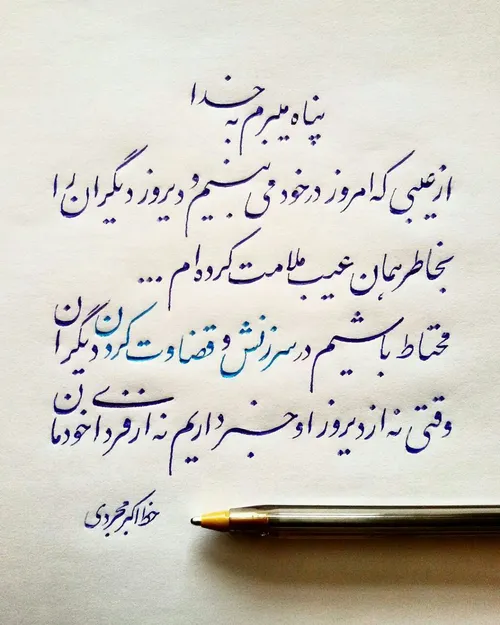 پناه میبرم به خدا
از عیبی که امروز در خود می بینیم و دیروز دیگران را
بخاطر همان عیب ملامت کرده ام ...
محتاط باشیم در سرزنش و قضاوت کردن دیگران
وقتی نه از دیروز او خبر داریم نه از فردای خودمان
خط اکبر مجردی